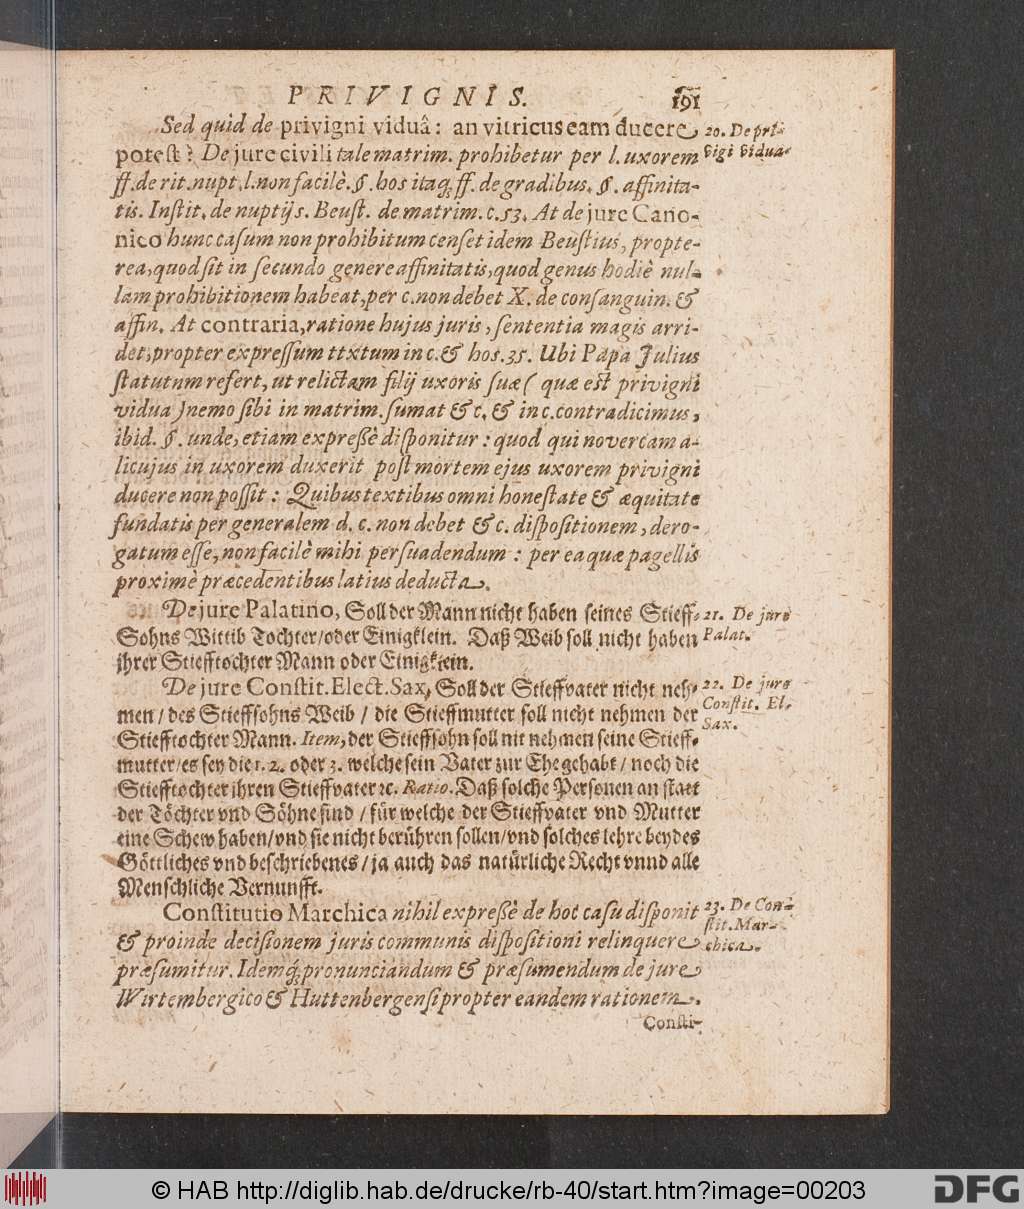 PRIVIGNIS. 191
Sed quid de privigni viduâ: an vitricus eam ducere
potest? De jure civili tale matrim. prohibetur per l. uxorem
ff. de rit. nupt. l. non facilè. §. hos itaq; ff. de gradibus. §. affinita-
tis. Instit. de nuptijs. Beust. de matrim. c. 53. At de jure Cano-
nico hunc casum non prohibitum censet idem Beustius, propte-
rea, quod sit in secundo genere affinitatis, quod genus hodiè nul-
lam prohibitionem habeat, per c. non debet X. de consanguin. &
affin. At contraria, ratione hujus juris, sententia magis arri-
det, propter expressum ttxtum in c. & hos. 35. Ubi Papa Julius
statutnm refert, ut relictam filij uxoris suæ (quæ est privigni
vidua) nemo sibi in matrim. sumat & c. & in c. contradicimus,
ibid. §. unde, etiam expreßè disponitur: quod qui novercam a-
licujus in uxorem duxerit post mortem ejus uxorem privigni
ducere non possit: Quibus textibus omni honestate & æquitate
fundatis per generalem d. c. non debet & c. dispositionem, dero-
gatum esse, non facilè mihi persuadendum: per ea quæ pagellis
proximè præcedentibus latius deducta.
De jure Palatino, Soll der Mann nicht haben seines Stieff-
Sohns Wittib Tochter/oder Einigklein. Daß Weib soll nicht haben
ihrer Stiefftochter Mann oder Einigklein.
De jure Constit. Elect. Sax, Soll der Stieffvater nicht neh-
men/ des Stieffsohns Weib/ die Stieffmutter soll nicht nehmen der
Stiefftochter Mann. Item, der Stieffsohn soll nit nehmen seine Stieff-
mutter/es sey die 1. 2. oder 3. welche sein Vater zur Ehe gehabt/ noch die
Stiefftochter ihren Stieffvater ꝛc. Ratio. Daß solche Personen an statt
der Töchter vnd Söhne sind/ für welche der Stieffvater vnd Mutter
eine Schew haben/vnd sie nicht berühren sollen/vnd solches lehre beydes
Göttliches vnd beschriebenes/ ja auch das natürliche Recht vnnd alle
Menschliche Vernunfft.
Constitutio Marchica nihil expreßè de hoc casu disponit
& proinde decisionem juris communis dispositioni relinquere
præsumitur. Idemq; pronunciandum & præsumendum de jure
Wirtembergico & Huttenbergensi propter eandem rationem.
Consti-
20. De pri-
vigi vidua.
21. De jure
Palat.
22. De jure
Constit. El.
Sax.
23. De Con-
stit. Mar-
chica.
© HAB http://diglib.hab.de/drucke/rb-40/start.htm?image=00203
DFG